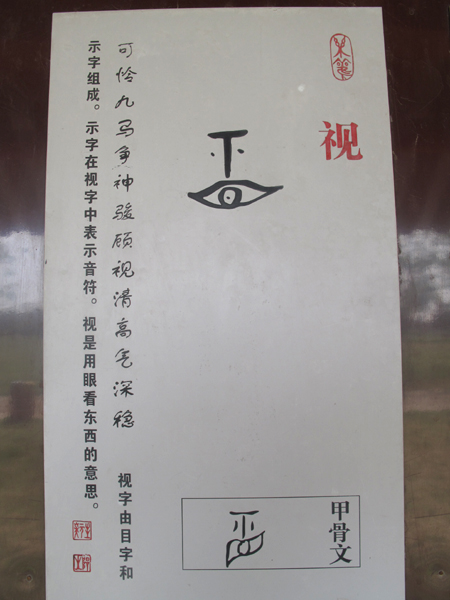 视
甲骨文
可怜九马争神骏顾视清高气深稳
视字由目字和
示字组成。示字在视字中表示音符。视是用眼看东西的意思。